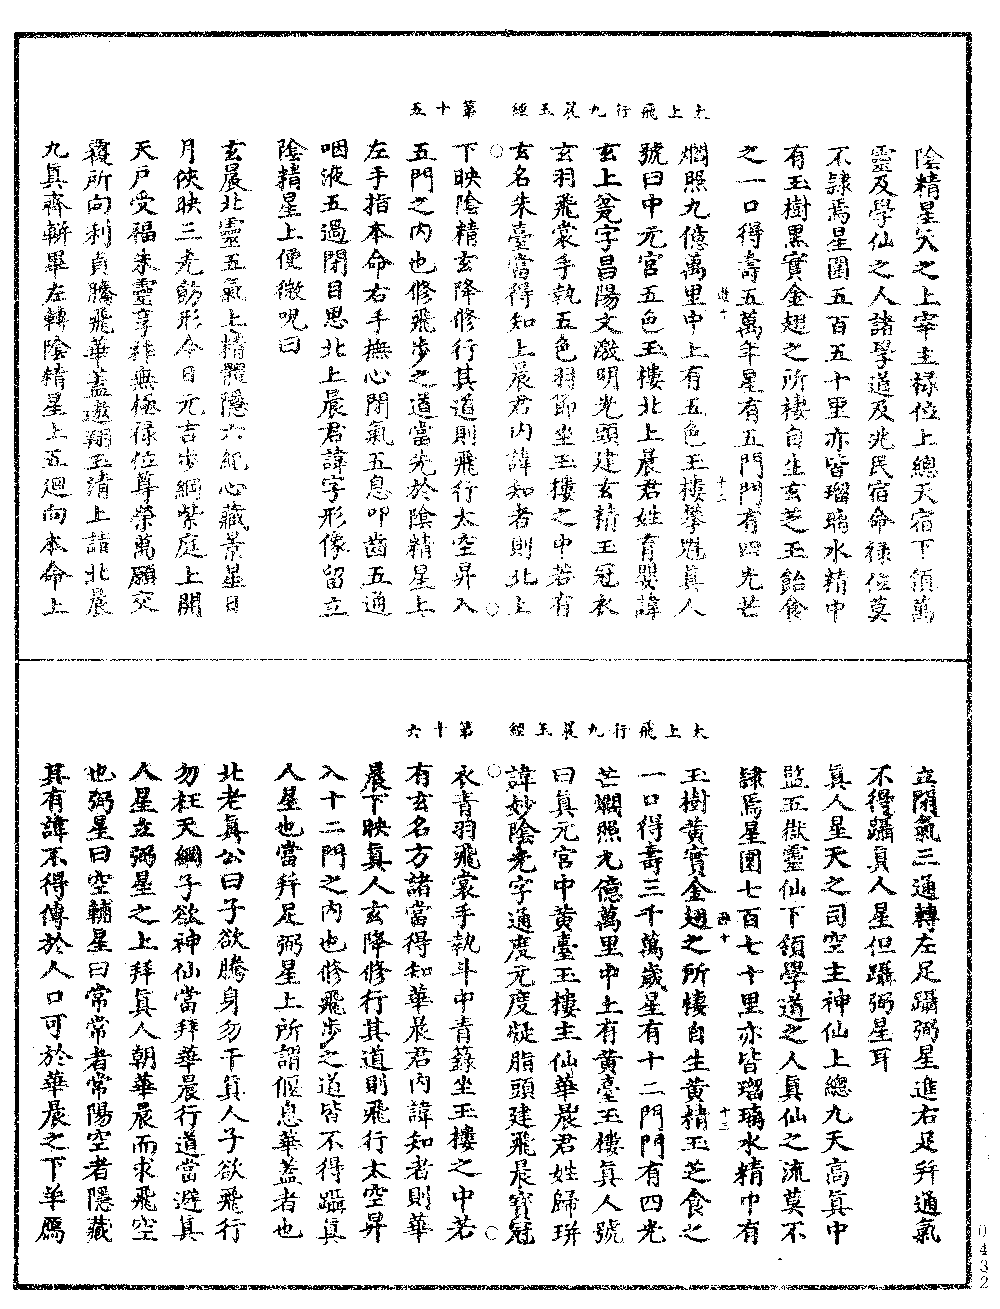 太上飛行九晨玉經　第十五
陰精星穴之上宰主祿位上總天宿下領萬
靈及學仙之人諸學道及兆民宿命祿位莫
不隸焉星圍五百五十里亦皆瑠璃水精中
有玉樹黑實金翅之所棲自生玄芝玉飴食
之一口得壽五萬年星有五門門有四光芒
烱照九億萬里中上有五色玉樓攀魁真人
號曰中元宮五色玉樓北上晨君姓育嬰諱
玄上筵字昌陽文激明光頭建玄精玉冠衣
玄羽飛裳手執五色羽節坐玉樓之中若有
玄名朱臺當得知上晨君內諱知者則北上
下映陰精玄降修行其道則飛行太空昇入
五門之內也修飛步之道當先於陰精星上
左手指本命右手撫心閉氣五息叩齒五通
咽液五過閉目思北上晨君諱字形像留立
陰精星上便微呪曰
玄晨北靈五氣上精體隱六紀心藏景星日
月俠映三光飭形今日元吉步綱紫庭上開
天戶受福朱靈享祚無極祿位尊榮萬願交
覆所向利貞騰飛華蓋遨翔玉清上詣北晨
九真齊軿畢左轉陰精星上五迴向本命上
道十
十二
太上飛行九晨玉經　第十六
立閉氣三通轉左足躡弼星進右足并通氣
不得躡真人星但躡弼星耳
真人星天之司空主神仙上總九天高真中
監五嶽靈仙下領學道之人真仙之流莫不
隸焉星圍七百七十里亦皆瑠璃水精中有
玉樹黃實金翅之所棲自生黃精玉芝食之
一口得壽三千萬歲星有十二門門有四光
芒烱照九億萬里中上有黃臺玉樓真人號
曰真元宮中黃臺玉樓主仙華晨君姓歸琲
諱妙陰光字通度元度凝脂頭建飛晨寶冠
衣青羽飛裳手執斗中青籙坐玉樓之中若
有玄名方諸當得知華晨君內諱知者則華
晨下映真人玄降修行其道則飛行太空昇
入十二門之內也修飛步之道皆不得躡真
人星也當并足弼星上所謂偃息華蓋者也
北老真公曰子欲騰身勿干真人子欲飛行
勿枉天綱子欲神仙當拜華晨行道當避真
人星立弼星之上拜真人朝華晨而求飛空
也弼星曰空輔星曰常常者常陽空者隱藏
其有諱不得傳於人口可於華晨之下羊鴈
十三
0432